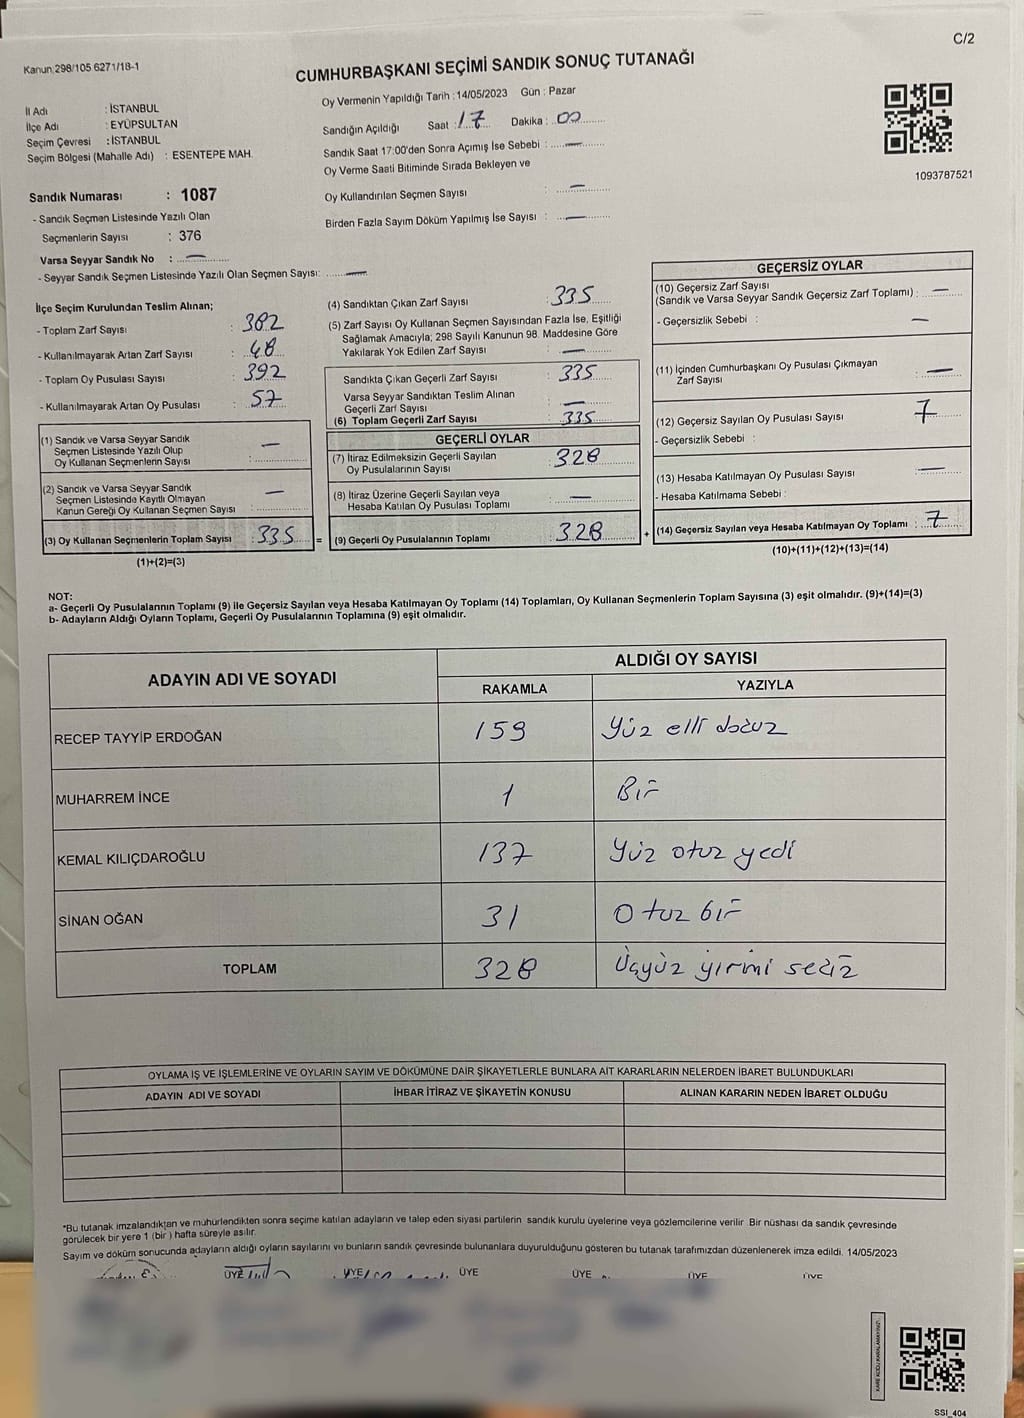 C/2
Kanun:298/105 6271/18-1
CUMHURBAŞKANI SEÇİMİ SANDIK SONUÇ TUTANAĞI
İl Adı : İSTANBUL
İlçe Adı : EYÜPSULTAN
Seçim Çevresi : İSTANBUL
Seçim Bölgesi (Mahalle Adı) : ESENTEPE MAH.
Oy Vermenin Yapıldığı Tarih : 14/05/2023 Gün : Pazar
Sandığın Açıldığı Saat : 17 Dakika : 00
Sandık Saat 17:00'den Sonra Açımış İse Sebebi : —
Oy Verme Saati Bitiminde Sırada Bekleyen ve
Oy Kullandırılan Seçmen Sayısı : —
Birden Fazla Sayım Döküm Yapılmış İse Sayısı : —
1093787521
Sandık Numarası : 1087
- Sandık Seçmen Listesinde Yazılı Olan
Seçmenlerin Sayısı : 376
Varsa Seyyar Sandık No : —
- Seyyar Sandık Seçmen Listesinde Yazılı Olan Seçmen Sayısı: —
İlçe Seçim Kurulundan Teslim Alınan;
- Toplam Zarf Sayısı : 382
- Kullanılmayarak Artan Zarf Sayısı : 48
- Toplam Oy Pusulası Sayısı : 392
- Kullanılmayarak Artan Oy Pusulası : 57
(1) Sandık ve Varsa Seyyar Sandık
Seçmen Listesinde Yazılı Olup
Oy Kullanan Seçmenlerin Sayısı : —
(2) Sandık ve Varsa Seyyar Sandık
Seçmen Listesinde Kayıtlı Olmayan
Kanun Gereği Oy Kullanan Seçmen Sayısı : —
(3) Oy Kullanan Seçmenlerin Toplam Sayısı : 335 =
(1)+(2)=(3)
(4) Sandıktan Çıkan Zarf Sayısı : 335
(5) Zarf Sayısı Oy Kullanan Seçmen Sayısından Fazla İse, Eşitliği
Sağlamak Amacıyla; 298 Sayılı Kanunun 98. Maddesine Göre
Yakılarak Yok Edilen Zarf Sayısı : —
Sandıkta Çıkan Geçerli Zarf Sayısı : 335
Varsa Seyyar Sandıktan Teslim Alınan
Geçerli Zarf Sayısı : —
(6) Toplam Geçerli Zarf Sayısı : 335
GEÇERLİ OYLAR
(7) İtiraz Edilmeksizin Geçerli Sayılan
Oy Pusulalarının Sayısı : 328
(8) İtiraz Üzerine Geçerli Sayılan veya
Hesaba Katılan Oy Pusulası Toplamı : —
(9) Geçerli Oy Pusulalarının Toplamı : 328 +
GEÇERSİZ OYLAR
(10) Geçersiz Zarf Sayısı
(Sandık ve Varsa Seyyar Sandık Geçersiz Zarf Toplamı) : —
- Geçersizlik Sebebi : —
(11) İçinden Cumhurbaşkanı Oy Pusulası Çıkmayan
Zarf Sayısı : —
(12) Geçersiz Sayılan Oy Pusulası Sayısı : 7
- Geçersizlik Sebebi :
(13) Hesaba Katılmayan Oy Pusulası Sayısı : —
- Hesaba Katılmama Sebebi :
(14) Geçersiz Sayılan veya Hesaba Katılmayan Oy Toplamı : 7
(10)+(11)+(12)+(13)=(14)
NOT:
a- Geçerli Oy Pusulalarının Toplamı (9) ile Geçersiz Sayılan veya Hesaba Katılmayan Oy Toplamı (14) Toplamları, Oy Kullanan Seçmenlerin Toplam Sayısına (3) eşit olmalıdır. (9)+(14)=(3)
b- Adayların Aldığı Oyların Toplamı, Geçerli Oy Pusulalarının Toplamına (9) eşit olmalıdır.
ADAYIN ADI VE SOYADI
ALDIĞI OY SAYISI
RAKAMLA YAZIYLA
RECEP TAYYİP ERDOĞAN 159 Yüz elli dokuz
MUHARREM İNCE 1 Bir
KEMAL KILIÇDAROĞLU 137 Yüz otuz yedi
SİNAN OĞAN 31 Otuz bir
TOPLAM 328 Üçyüz yirmi sekiz
OYLAMA İŞ VE İŞLEMLERİNE VE OYLARIN SAYIM VE DÖKÜMÜNE DAİR ŞİKAYETLERLE BUNLARA AİT KARARLARIN NELERDEN İBARET BULUNDUKLARI
ADAYIN ADI VE SOYADI İHBAR İTİRAZ VE ŞİKAYETİN KONUSU ALINAN KARARIN NEDEN İBARET OLDUĞU
*Bu tutanak imzalandıktan ve mühürlendikten sonra seçime katılan adayların ve talep eden siyasi partilerin sandık kurulu üyelerine veya gözlemcilerine verilir. Bir nüshası da sandık çevresinde
görülecek bir yere 1 (bir) hafta süreyle asılır.
Sayım ve döküm sonucunda adayların aldığı oyların sayılarını ve bunların sandık çevresinde bulunanlara duyurulduğunu gösteren bu tutanak tarafımızdan düzenlenerek imza edildi. 14/05/2023
ÜYE ÜYE ÜYE ÜYE ÜYE ÜYE
SSI_404